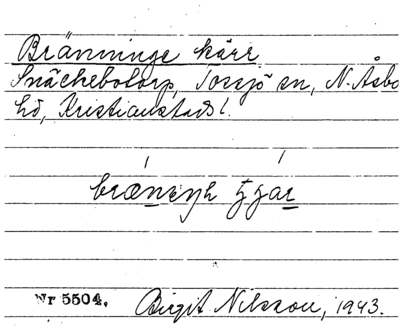 Bränninge kärr
Snäckebotorp, Tossjö sn, N. Åsbo
hd, Kristianstads l.
Nr 5504. Birgit Nilsson, 1943.